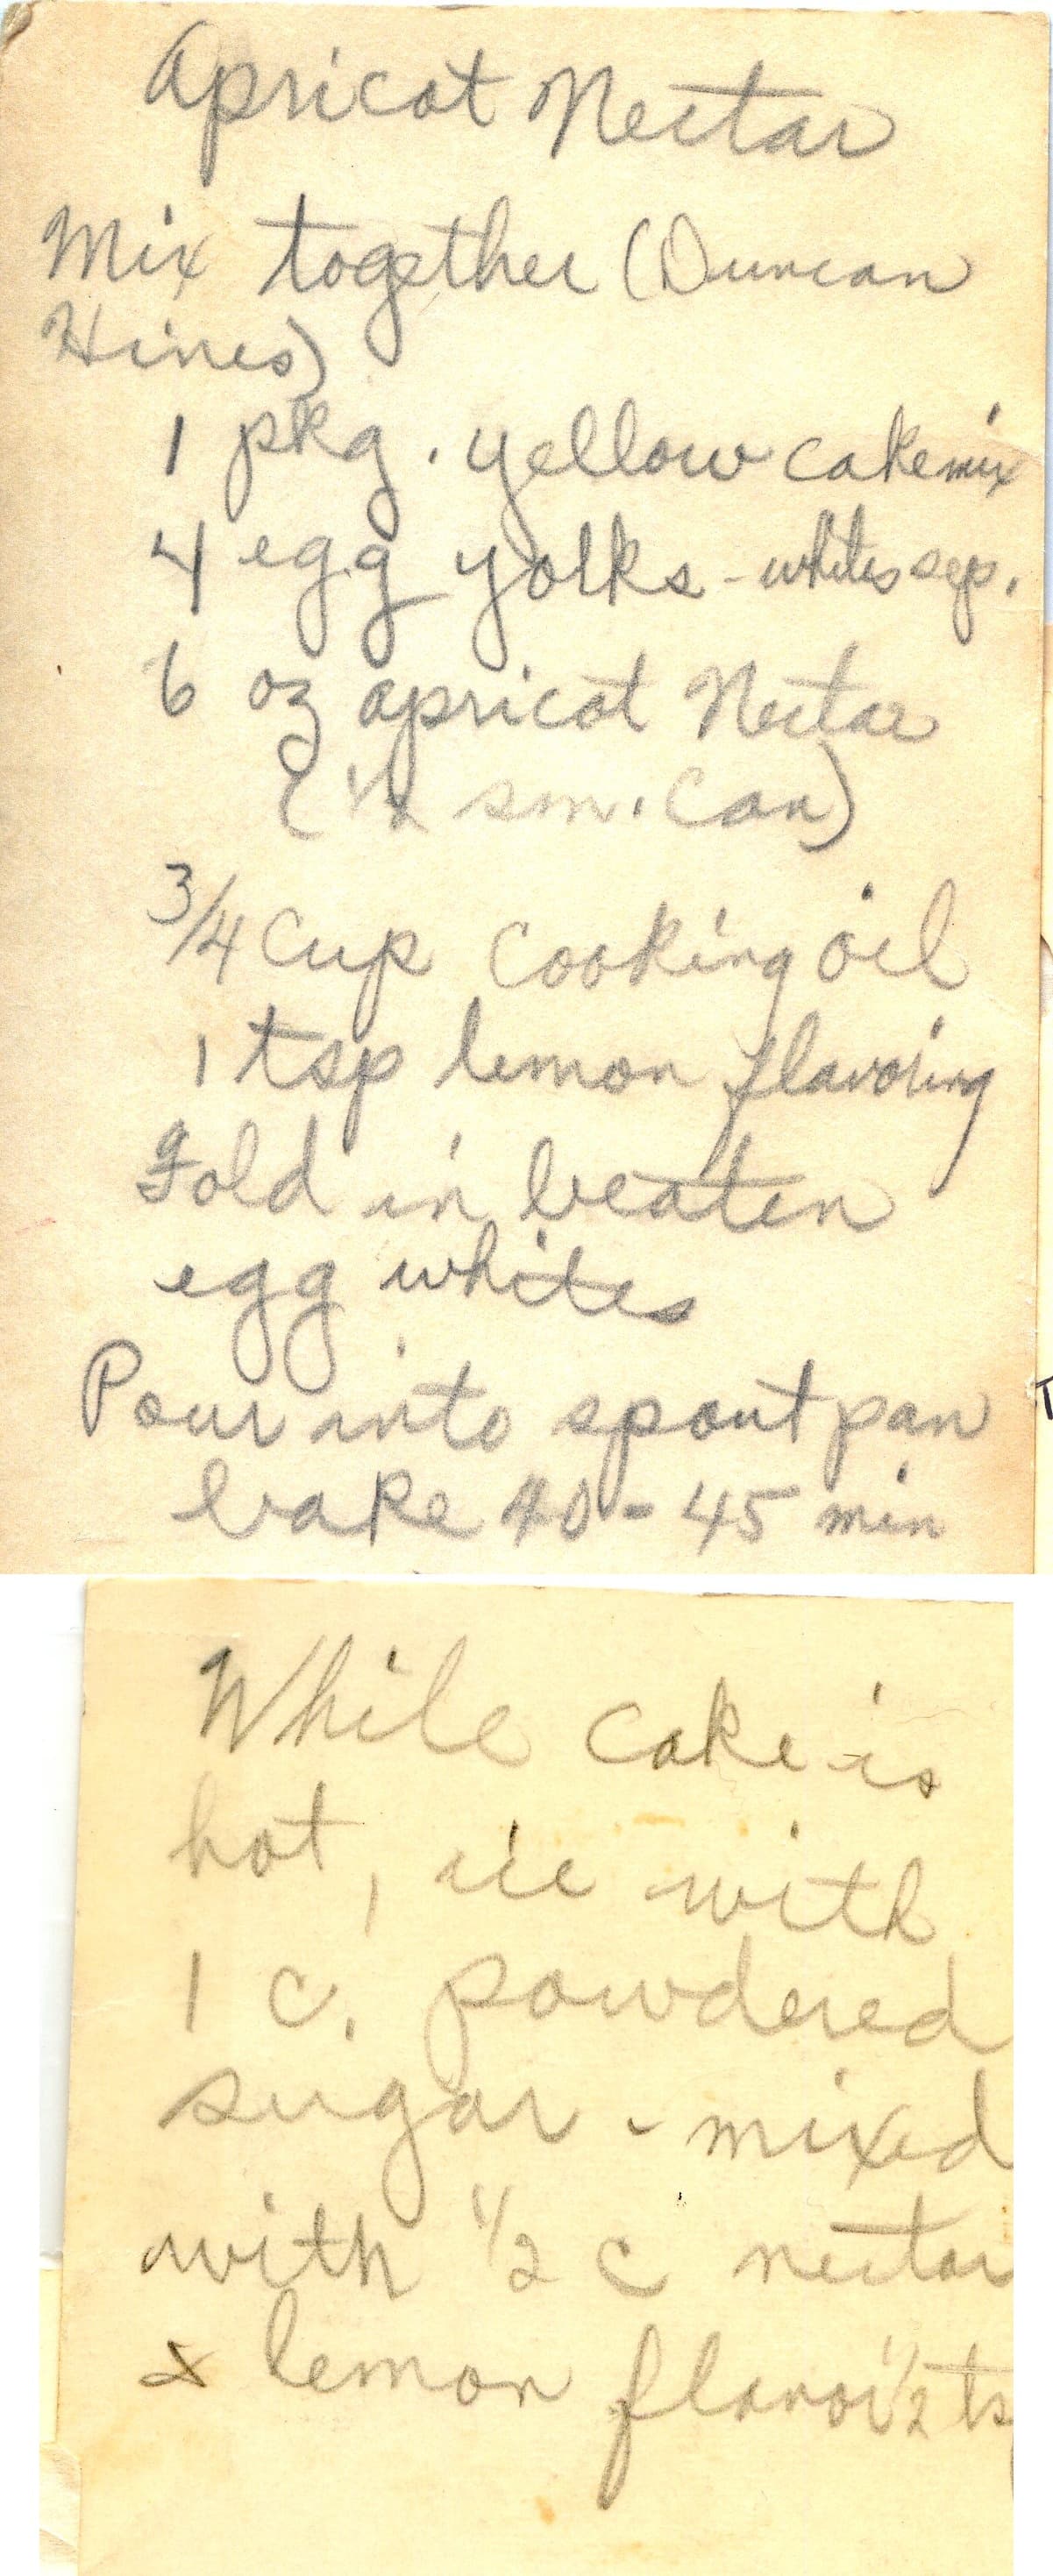 Apricot Nectar
Mix together (Duncan
Hines)
1 pkg. yellow cake mix
4 egg yolks - whites sep.
6 oz apricot Nectar
(1/2 sm. Can)
3/4 cup cooking oil
1 tsp lemon flavoring
Fold in beaten
egg whites
Pour into spout pan
bake 40 - 45 min
While cake is
hot, ice with
1 c. powdered
sugar - mixed
with 1/2 c nectar
& lemon flavor 1/2 ts